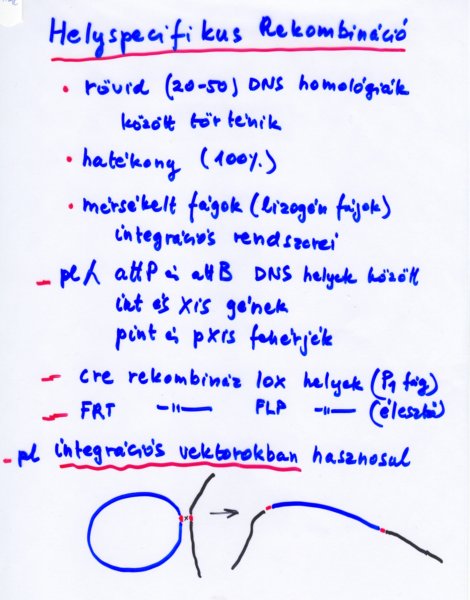 Helyspecifikus Rekombináció
• rövid (20-50) DNS homológiák
között történik
• hatékony (100%)
• mérsékelt fágok (lizogén fájok)
integrációs rendszerei
– pl λ attP és attB DNS helyek között
int és xis gének
pint és pxis fehérjék
– cre rekombináz lox helyek (P1 fág)
– FRT –"– FLP –"– (élesztő)
– pl integrációs vektorokban hasznosul